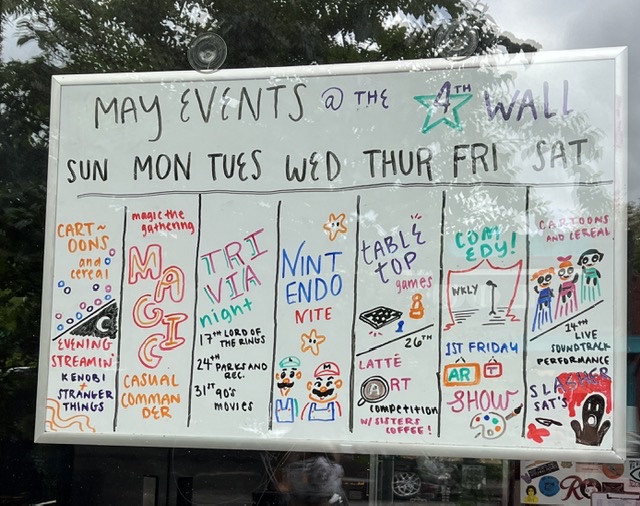 MAY EVENTS @ THE 4TH WALL
SUN MON TUES WED THUR FRI SAT
CART~
OONS
and
cereal
EVENING
STREAMIN'
KENOBI
+
STRANGER
THINGS
magic the
gathering
MAGIC
CASUAL
COMMAN
DER
TRI
VIA
night
17TH LORD OF
THE RINGS
24TH PARKS AND
REC.
31ST 90'S
MOVIES
NINT
ENDO
NITE
TABLE
TOP
games
26TH
LATTÉ
ART
competition
W/ SISTERS
COFFEE!
COM
EDY!
WKLY
1ST FRIDAY
ART
SHOW
CARTOONS
AND CEREAL
14TH LIVE
SOUNDTRACK
PERFORMANCE
SLASHER
SAT'S